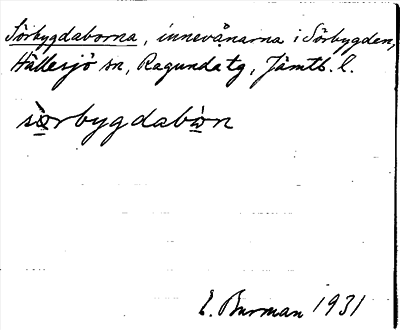 Sörbygdaborna, innevånarna i Sörbygden,
Hällesjö sn, Ragunda tg, Jämtl. l.
sörbygdabọn
E. Burman 1931